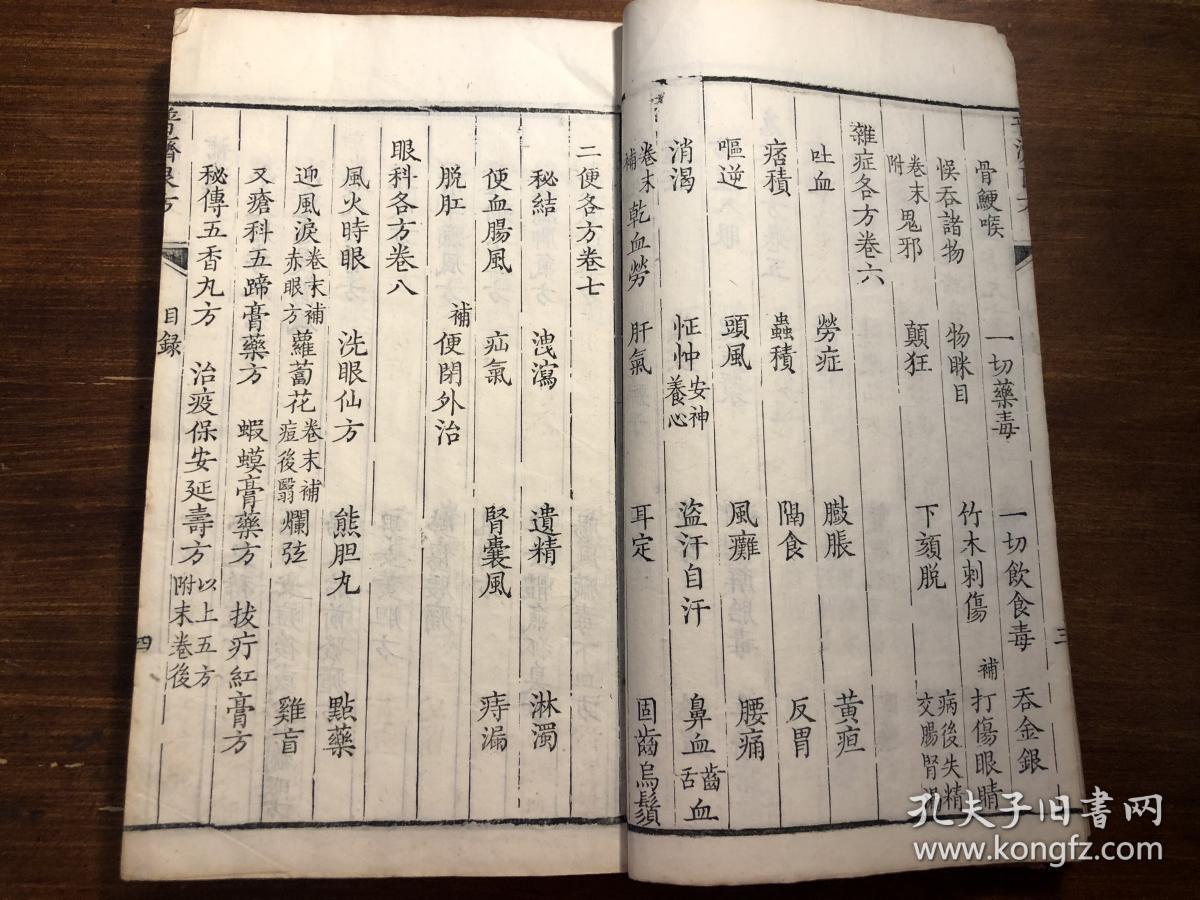 骨鯁喉 一切藥毒 一切飲食毒 吞金銀
悞吞諸物 物眯目 竹木刺傷 補打傷眼睛
附卷末鬼邪 顛狂 下頦脫 病後失精交腸腎
雜症各方卷六
吐血 勞症 臌脹 黃疸
痞積 蟲積 隔食 反胃
嘔逆 頭風 風癱 腰痛
消渴 怔忡安神養心 盜汗自汗 鼻血齒舌血
補卷末乾血勞 肝氣 耳定 固齒烏鬚
三
二便各方卷七
秘結 洩瀉 遺精 淋濁
便血腸風 疝氣 腎囊風 痔漏
脱肛 補便閉外治
眼科各方卷八
風火時眼 洗眼仙方 熊胆丸 點藥
迎風淚卷末補赤眼方 蘿蔔花卷末補痘後翳 爛弦 雞盲
又瘡科五蹄膏藥方 蝦蟆膏藥方 拔疔紅膏方
秘傳五香丸方 治疫保安延壽方以上五方附末卷後
普濟良方 目録 四
孔夫子旧书网
www.kongfz.com